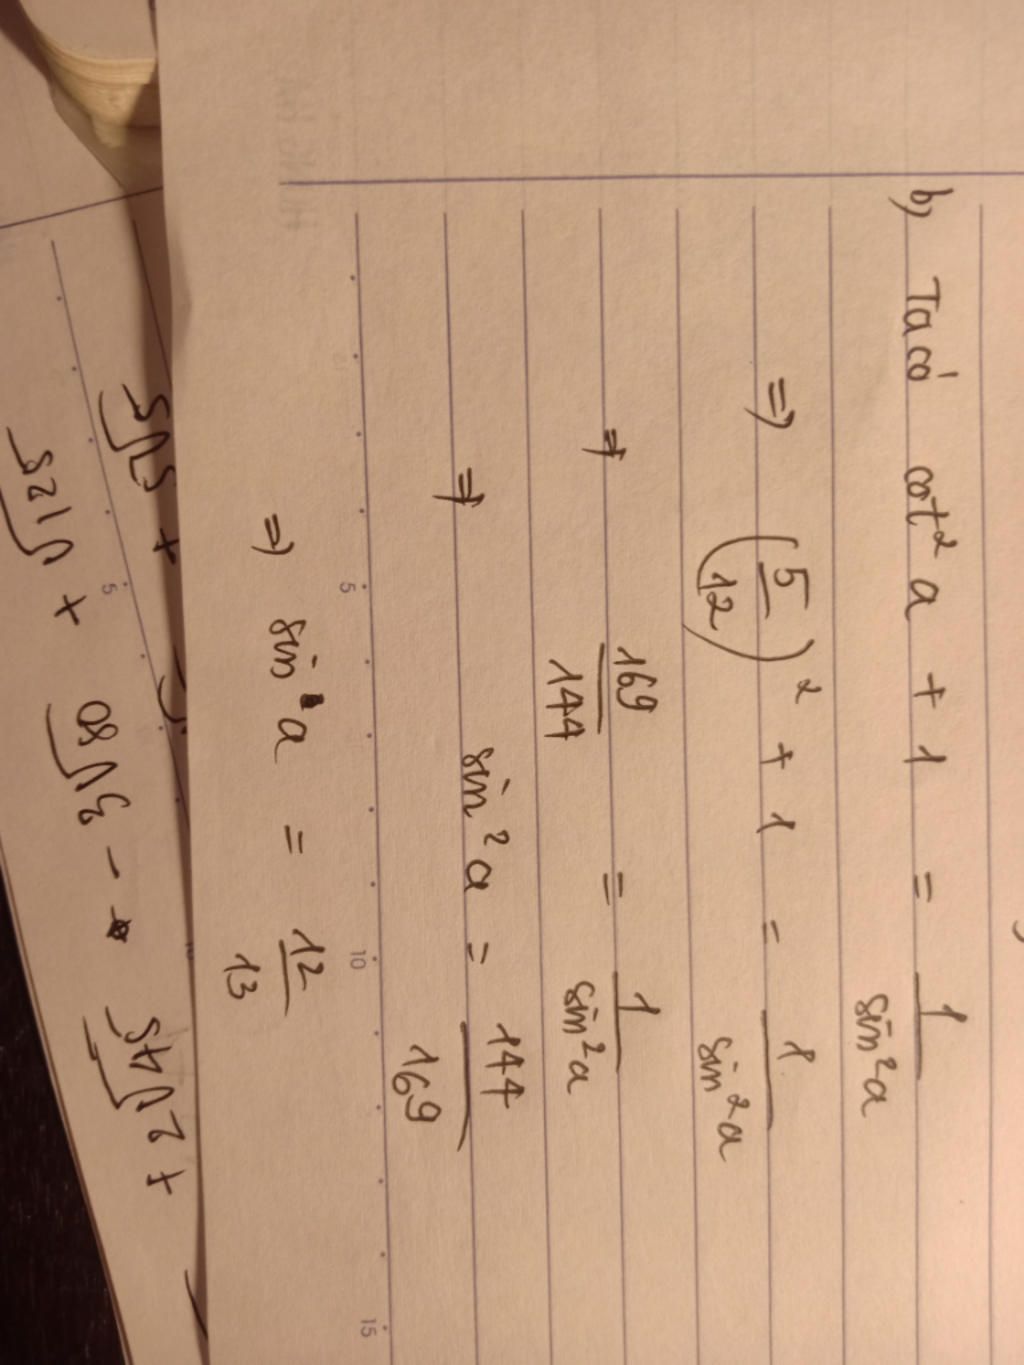 b) Ta có cot² a + 1 = 1/sin² a
=> (5/12)² + 1 = 1/sin² a
=> 169/144 = 1/sin² a
=> sin² a = 144/169
=> sin a = 12/13
5 10 15
5√5 +
√125 + 3√80 - 2√45 +
5